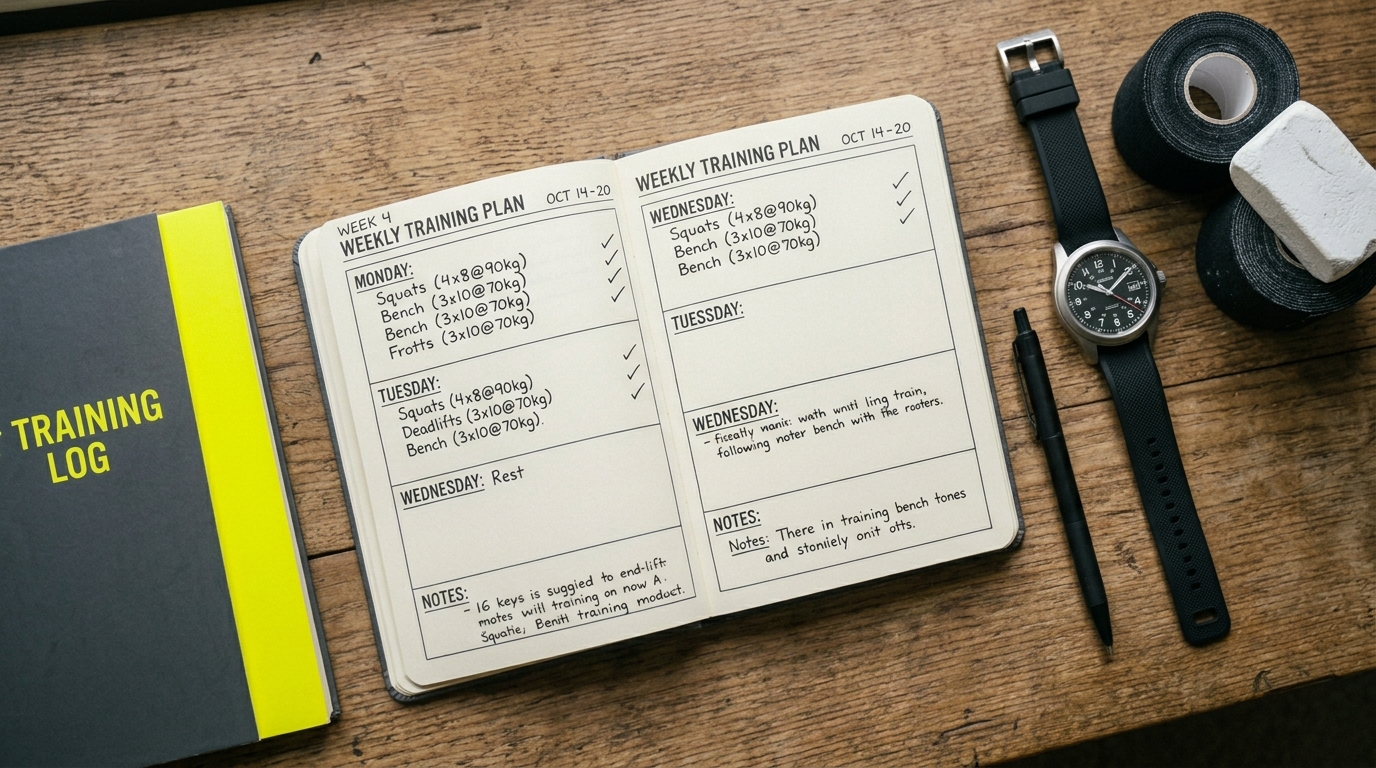 TRAINING
LOG
WEEK 4
WEEKLY TRAINING PLAN OCT 14-20
MONDAY:
Squats (4x8@90kg)
Bench (3x10@70kg)
Bench (3x10@70kg)
Frotts (3x10@70kg)
TUESDAY:
Squats (4x8@90kg)
Deadlifts (3x10@70kg)
Bench (3x10@70kg).
WEDNESDAY: Rest
NOTES:
- 16 keys is suggied to end-lift
motes will training on now A.
Squatie, Benlt training moduct.
WEEKLY TRAINING PLAN OCT 14-20
WEDNESDAY:
Squats (4x8@90kg)
Bench (3x10@70kg)
Bench (3x10@70kg)
TUESSDAY:
WEDNESDAY:
- wath ling train,
following noter bench with the rooters.
NOTES:
Notes: There in training bench tones
and otts.
10 12 1 2 4 5 6 7 8